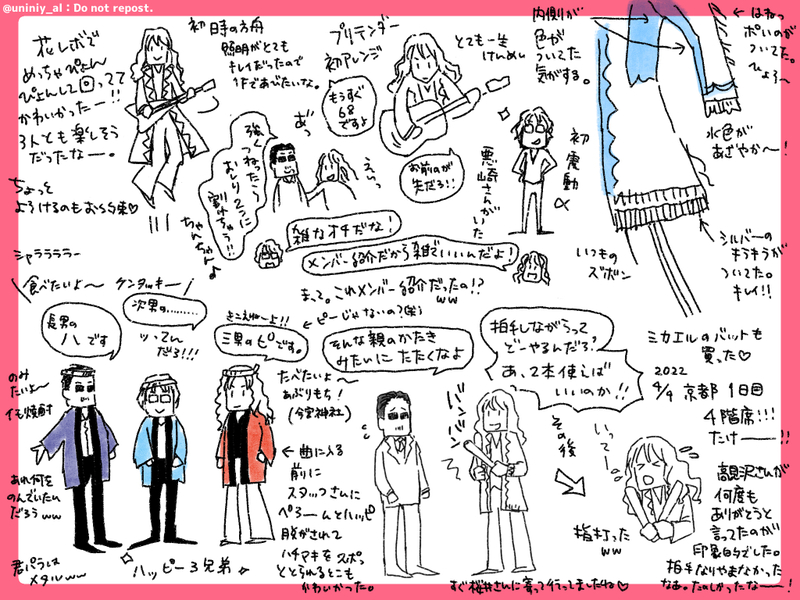 @uniniy_al : Do not repost.
花レボで
めっちゃぴょん
ぴょんして回ってて
かわいかったー!!
3人とも楽しそう
だったなー。
ちょっと
よろけるのもお約束♡
初 日時の方舟
照明がとても
キレイだったので
プリテンダー
初アレンジ
もうすぐ
68
ですよ
とても一生
けんめい
お前のが
まだろ!!
内側が
色が
ついてた
気がする。
← はねっ
ぽいのが
ついてた。
ひょろ〜
水色が
あざやか〜!
初 震動α
悪崎さんがいた
強くつねったら
おしり2つに
割けちゃう!!
ちゃんちゃん♪
あっ
えいっ
雑なオチだな!
メンバー紹介だから雑でいいんだよ!
まって。これメンバー紹介だったの!?
ww
いつもの
ズボン
シルバーの
キラキラが
ついてた。
キレイ!!
シャララララー
食べたいよ〜
ケンタッキー
長男の
ハです
次男の………
ッ、てん
だろ!!!
きこえねーよ!!
三男のピです。
← ピーじゃないの?(笑)
のみ
たいよ〜
イモ焼酎
あれ何を
のんでいたん
だろうww
君パラは
メタルww
ハッピー3兄弟
たべたいよ〜
あぶりもち!
(今宮神社)
← 曲に入る
前に
スタッフさんに
ぺろーんとハッピ
脱がされて
ハチマキをスポッ
ととられるとこも
かわいかった。
そんな親のかたき
みたいにたたくなよ
バンバン
拍手しながらって
どーやるんだろ?
あ、2本使えば
いいのか!!
その後
いってー
指打った
ww
すぐ桜井さんに寄って行ってましたね♡
ミカエルのバットも
買った♡
2022
4/9 京都 1日目
4階席!!!
たけーー!!
高見沢さんが
何度も
ありがとうと
言ってたのが
印象的でした。
拍手なりやまなかった
なあ。たのしかったなー!